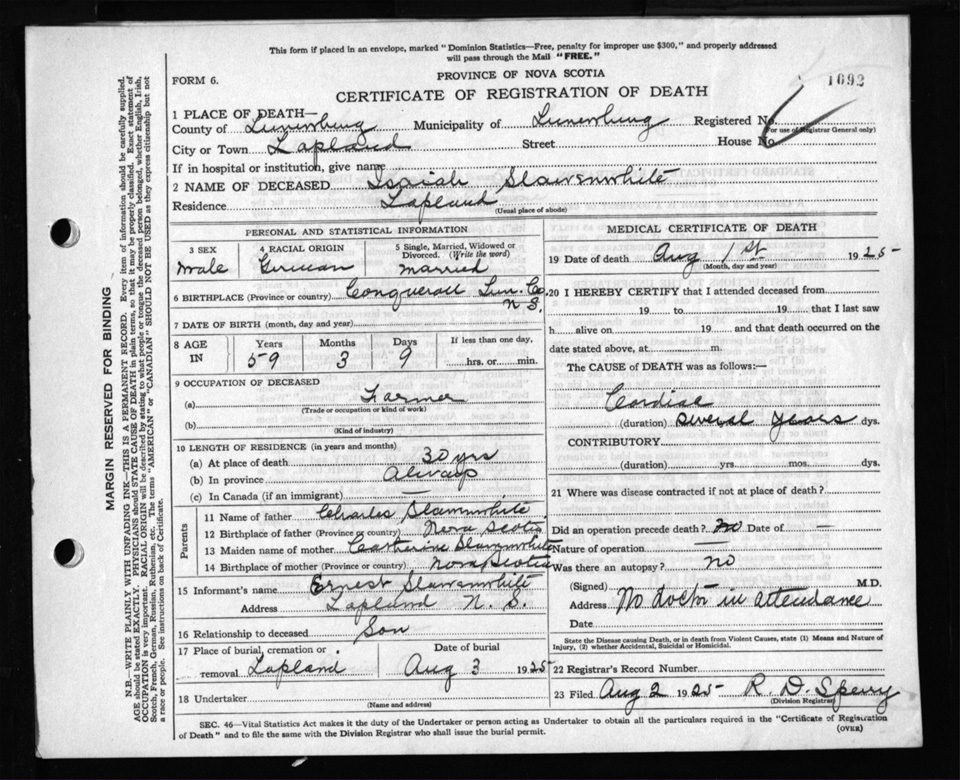 This form if placed in an envelope, marked "Dominion Statistics—Free, penalty for improper use $300," and properly addressed
will pass through the Mail "FREE."
FORM 6.
PROVINCE OF NOVA SCOTIA
1692
CERTIFICATE OF REGISTRATION OF DEATH
1 PLACE OF DEATH—
County of Lunenburg Municipality of Lunenburg Registered No.
(For use of Registrar General only)
City or Town Lapland Street House No.
If in hospital or institution, give name
2 NAME OF DECEASED Isaiah Slawenwhite
Residence Lapland
(Usual place of abode)
PERSONAL AND STATISTICAL INFORMATION
3 SEX 4 RACIAL ORIGIN 5 Single, Married, Widowed or Divorced. (Write the word)
Male German Married
6 BIRTHPLACE (Province or country) Conquerall Lun. Co. N S.
7 DATE OF BIRTH (month, day and year)
8 AGE IN Years Months Days If less than one day,
59 3 9 hrs. or min.
9 OCCUPATION OF DECEASED
(a) Farmer
(Trade or occupation or kind of work)
(b)
(Kind of industry)
10 LENGTH OF RESIDENCE (in years and months)
(a) At place of death 30 yrs
(b) In province Always
(c) In Canada (if an immigrant) —
Parents
11 Name of father Charles Slawnwhite
12 Birthplace of father (Province or country) Nova Scotia
13 Maiden name of mother Catherine Slawnwhite
14 Birthplace of mother (Province or country) Nova Scotia
15 Informant's name Ernest Slawenwhite
Address Lapland N. S.
16 Relationship to deceased Son
17 Place of burial, cremation or Date of burial
removal Lapland Aug 3 1925
18 Undertaker
(Name and address)
MEDICAL CERTIFICATE OF DEATH
19 Date of death Aug 1st 1925
(Month, day and year)
20 I HEREBY CERTIFY that I attended deceased from
19 to 19 that I last saw
h alive on 19 and that death occurred on
date stated above, at m.
The CAUSE of DEATH was as follows:—
Cardiac
(duration) several years dys.
CONTRIBUTORY
(duration) yrs. mos. dys.
21 Where was disease contracted if not at place of death?
Did an operation precede death? no Date of —
Nature of operation —
Was there an autopsy? no
(Signed) M.D.
Address No doctor in attendance
Date
State the Disease causing Death, or in death from Violent Causes, state (1) Means and Nature of
Injury, (2) whether Accidental, Suicidal or Homicidal.
22 Registrar's Record Number
23 Filed Aug 2 1925 R. D. Sperry
(Division Registrar)
SEC. 46—Vital Statistics Act makes it the duty of the Undertaker or person acting as Undertaker to obtain all the particulars required in the "Certificate of Registration
of Death" and to file the same with the Division Registrar who shall issue the burial permit.
(OVER)
MARGIN RESERVED FOR BINDING
N.B.—WRITE PLAINLY WITH UNFADING INK—THIS IS A PERMANENT RECORD. Every item of information should be carefully supplied.
AGE should be stated EXACTLY. PHYSICIANS should STATE CAUSE OF DEATH in plain terms, so that it may be properly classified. Exact statement of
OCCUPATION is very important. RACIAL ORIGIN will be described by stating to what people or tongue the deceased person belonged, whether English, Irish,
Scotch, French, German, Russian, Ruthenian, etc. The terms "AMERICAN" or "CANADIAN" SHOULD NOT BE USED as they express citizenship but not
a race or people. See instructions on back of Certificate.